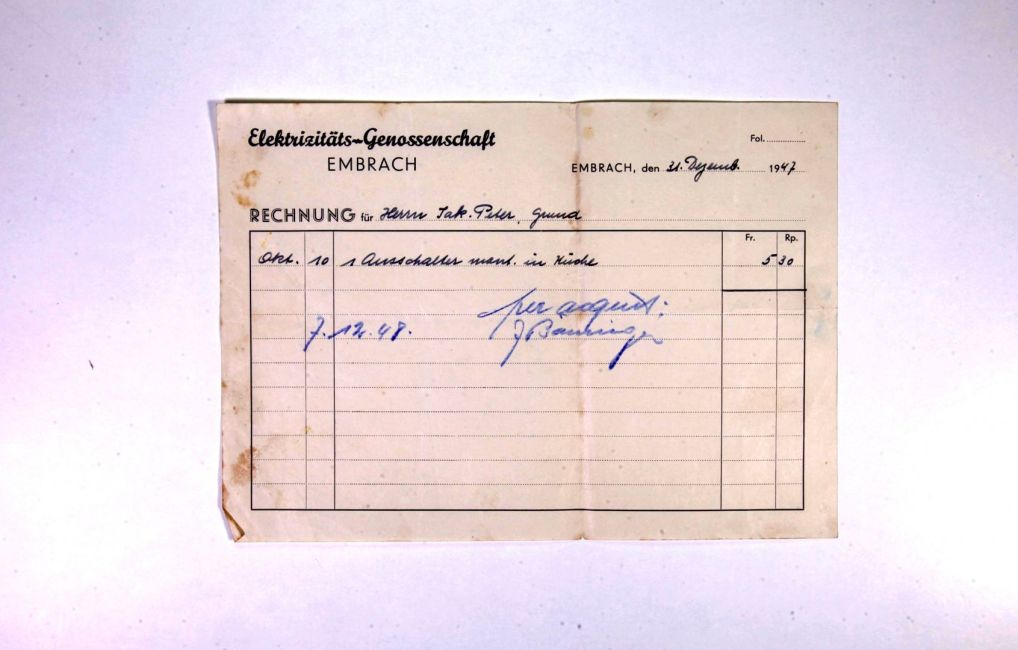 Elektrizitäts-Genossenschaft
EMBRACH
Fol.
EMBRACH, den 31. Dezemb. 1947
RECHNUNG für Herrn Jak. Peter, Grund
Fr. Rp.
Okt. 10 1 Ausschalter mont. in Küche 5 30
per acquit:
7.12.48. J Bänninger